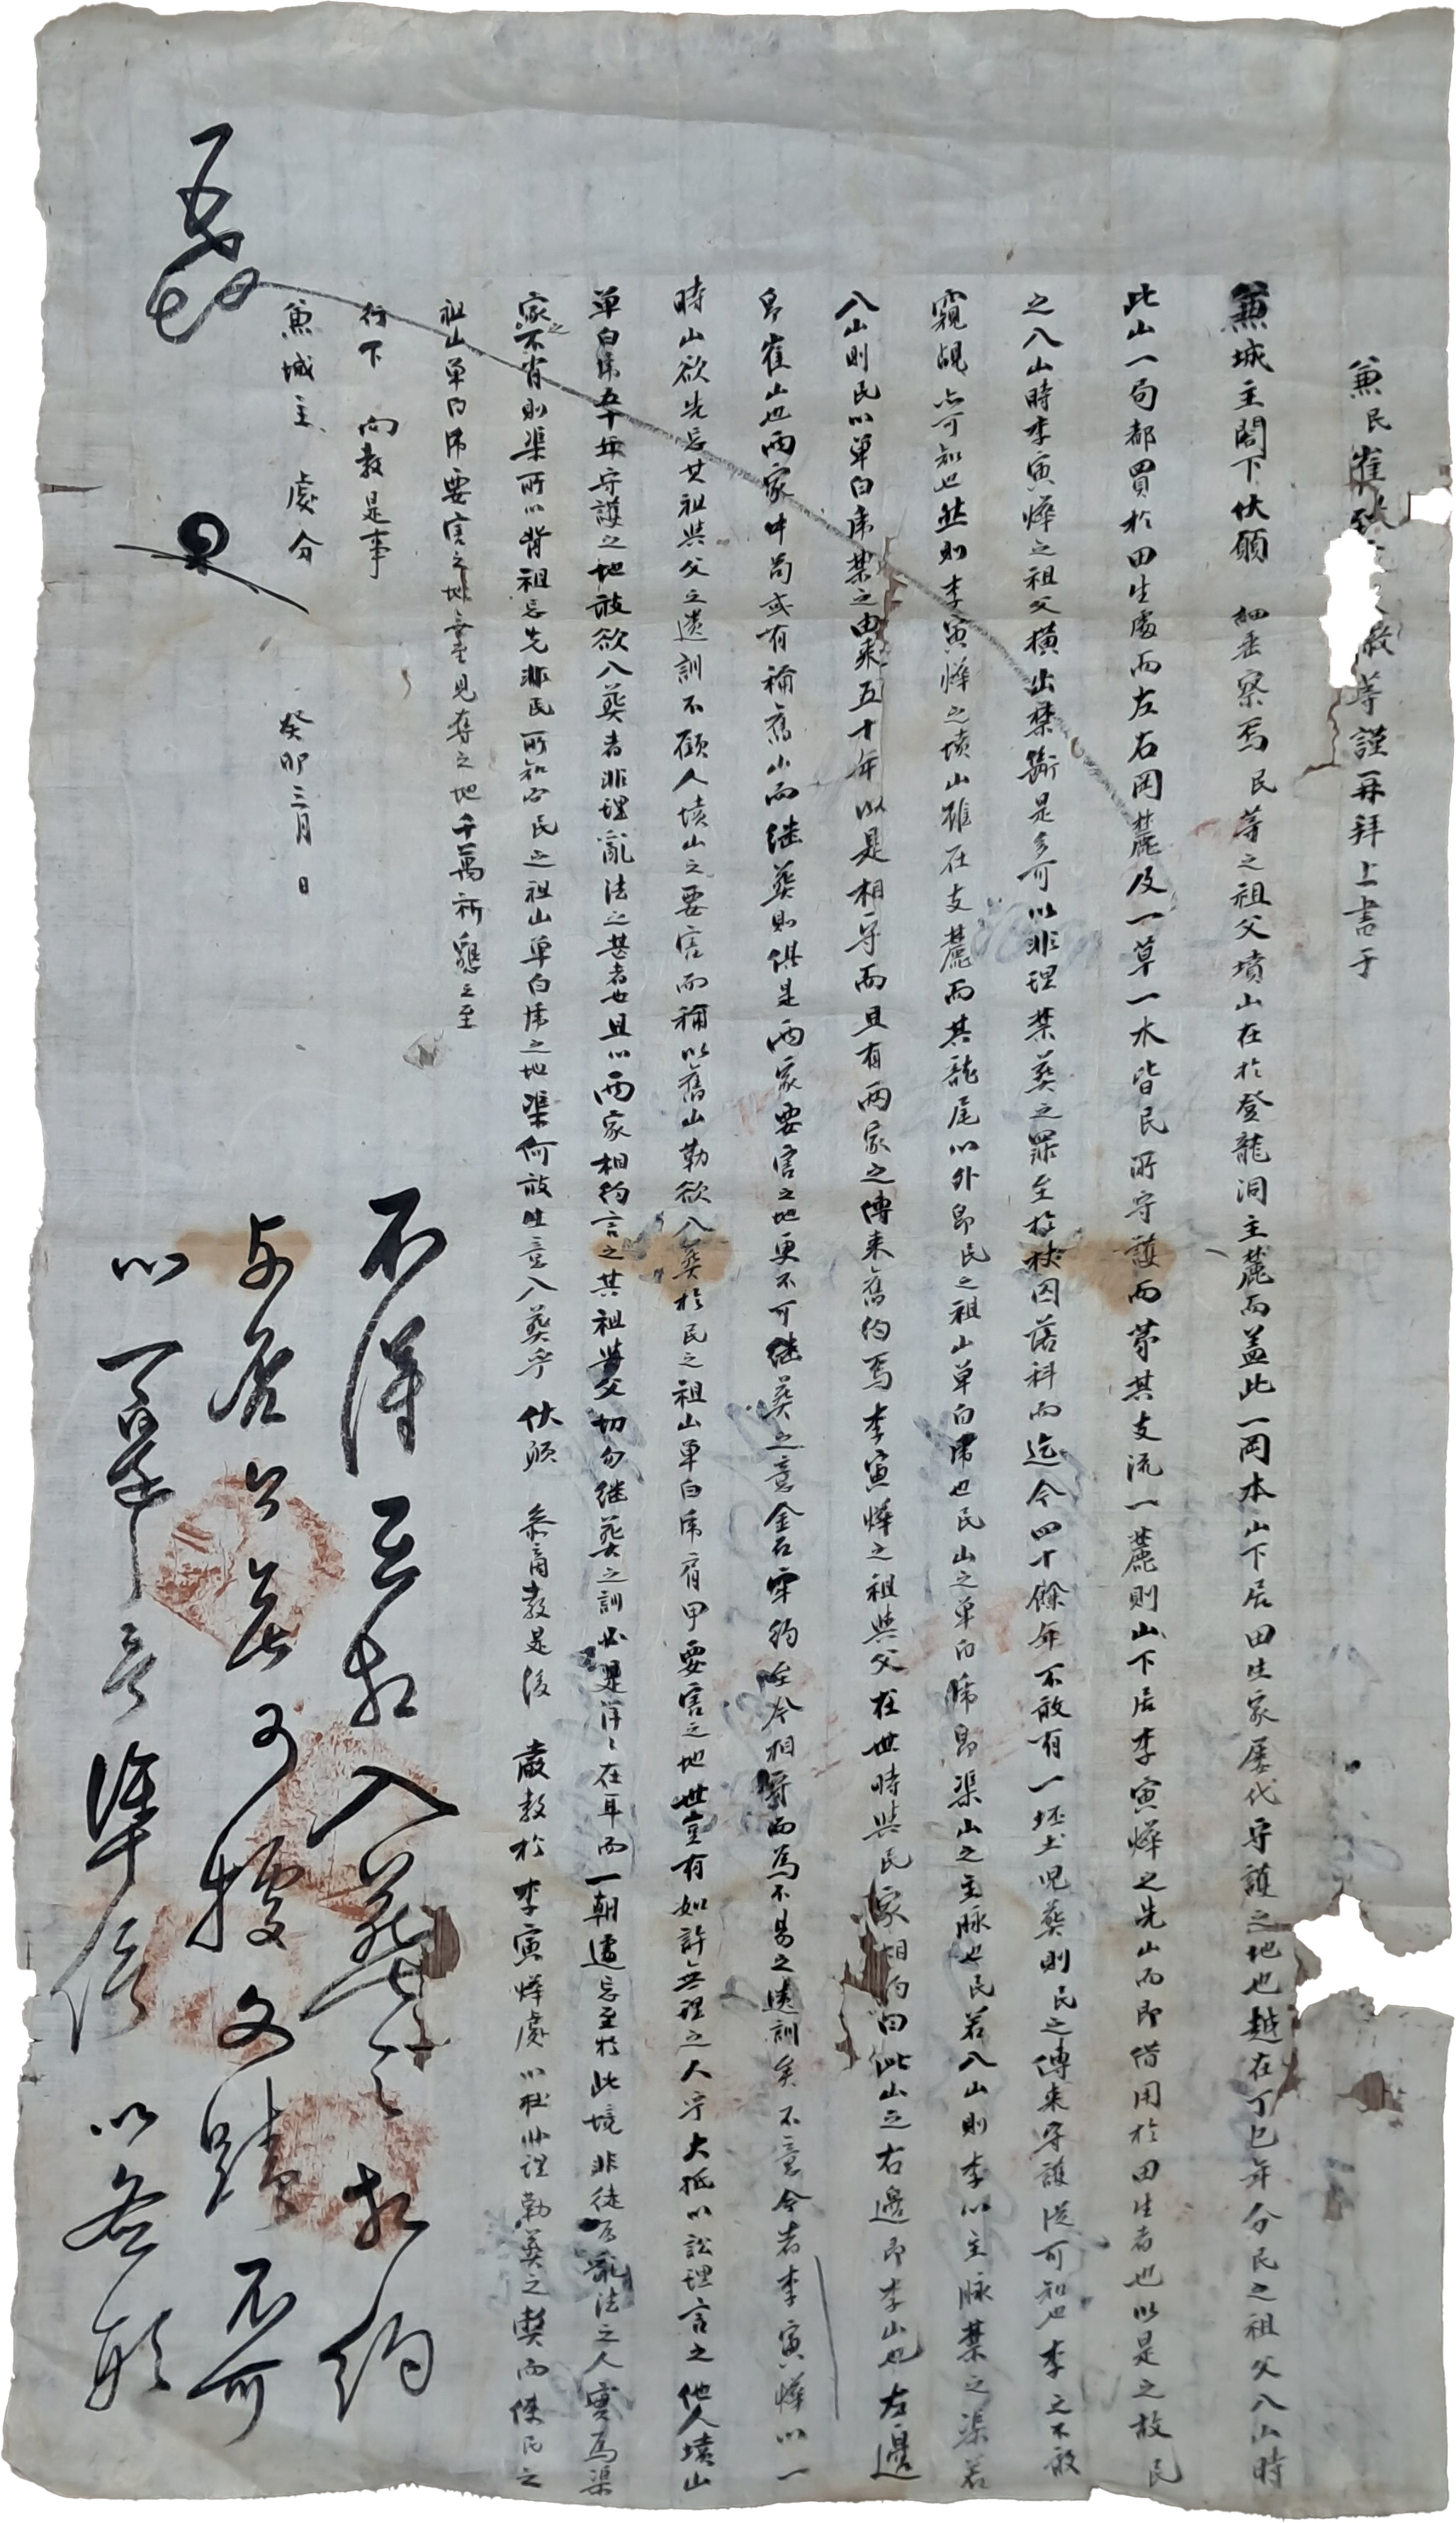 兼民崔 等謹再拜上書于
兼城主閤下伏願 細垂察焉 民等之祖父墳山在於登龍洞主麓而盖此一岡本山下居田生家屡代守護之地也越在丁巳年分民之祖父入山時
此山一局都買於田生處而左右岡麓及一草一木皆民所守護而第其支流一麓則山下居李寅燁之先山而即借用於田生者也以是之故民
之入山時李寅燁之祖父橫出禁斷是多可以非理禁葬之罪至於秋囚落科而迄今四十餘年不敢有一坯土児葬則民之傳来守護從可知也李之不敢
窺覘亦可知也然則李寅燁之墳山雖在支麓而其龍尾以外即民之祖山單白席也民山之單白席即渠山之主脉也民若入山則李以主脉禁之渠若
入山則民以單白席禁之由来五十年以是相守而且有兩家之傳来舊約焉李寅燁之祖與父在世時與民家相約曰此山之右邊即李山也左邊
即崔山也兩家中苟或有稱舊山而継葬則俱是兩家要害之地更不可継葬之意金石牢約至今相守而爲不易之遺訓矣不意今者李寅燁以一
時山欲先忘其祖與父之遺訓不顧人墳山之要害而稱以舊山勒欲入葬於民之祖山單白席肩甲要害之地世豈有如許無理之人乎大抵以訟理言之他人墳山
單白席五十年守護之地敢欲入葬者非理亂法之甚者也且以兩家相約言之其祖與父切勿継葬之訓必是洋々在耳而一朝遽忘至於此境非徒爲亂法之人實爲渠
家之不肖則渠所以背祖忘先非民所知而民之祖山單白席之地渠何敢生意入葬乎 伏願 參商教是後 嚴教於李寅燁處以杜非理勒葬之弊而俾民之
祖山單白席要害之地無至見奪之地千萬祈懇之至
行下 向教是事
兼城主 處分 癸卯三月 日
不得互相入葬之相約
与否必有可據文蹟不可
以一筆 準信 以爲頉